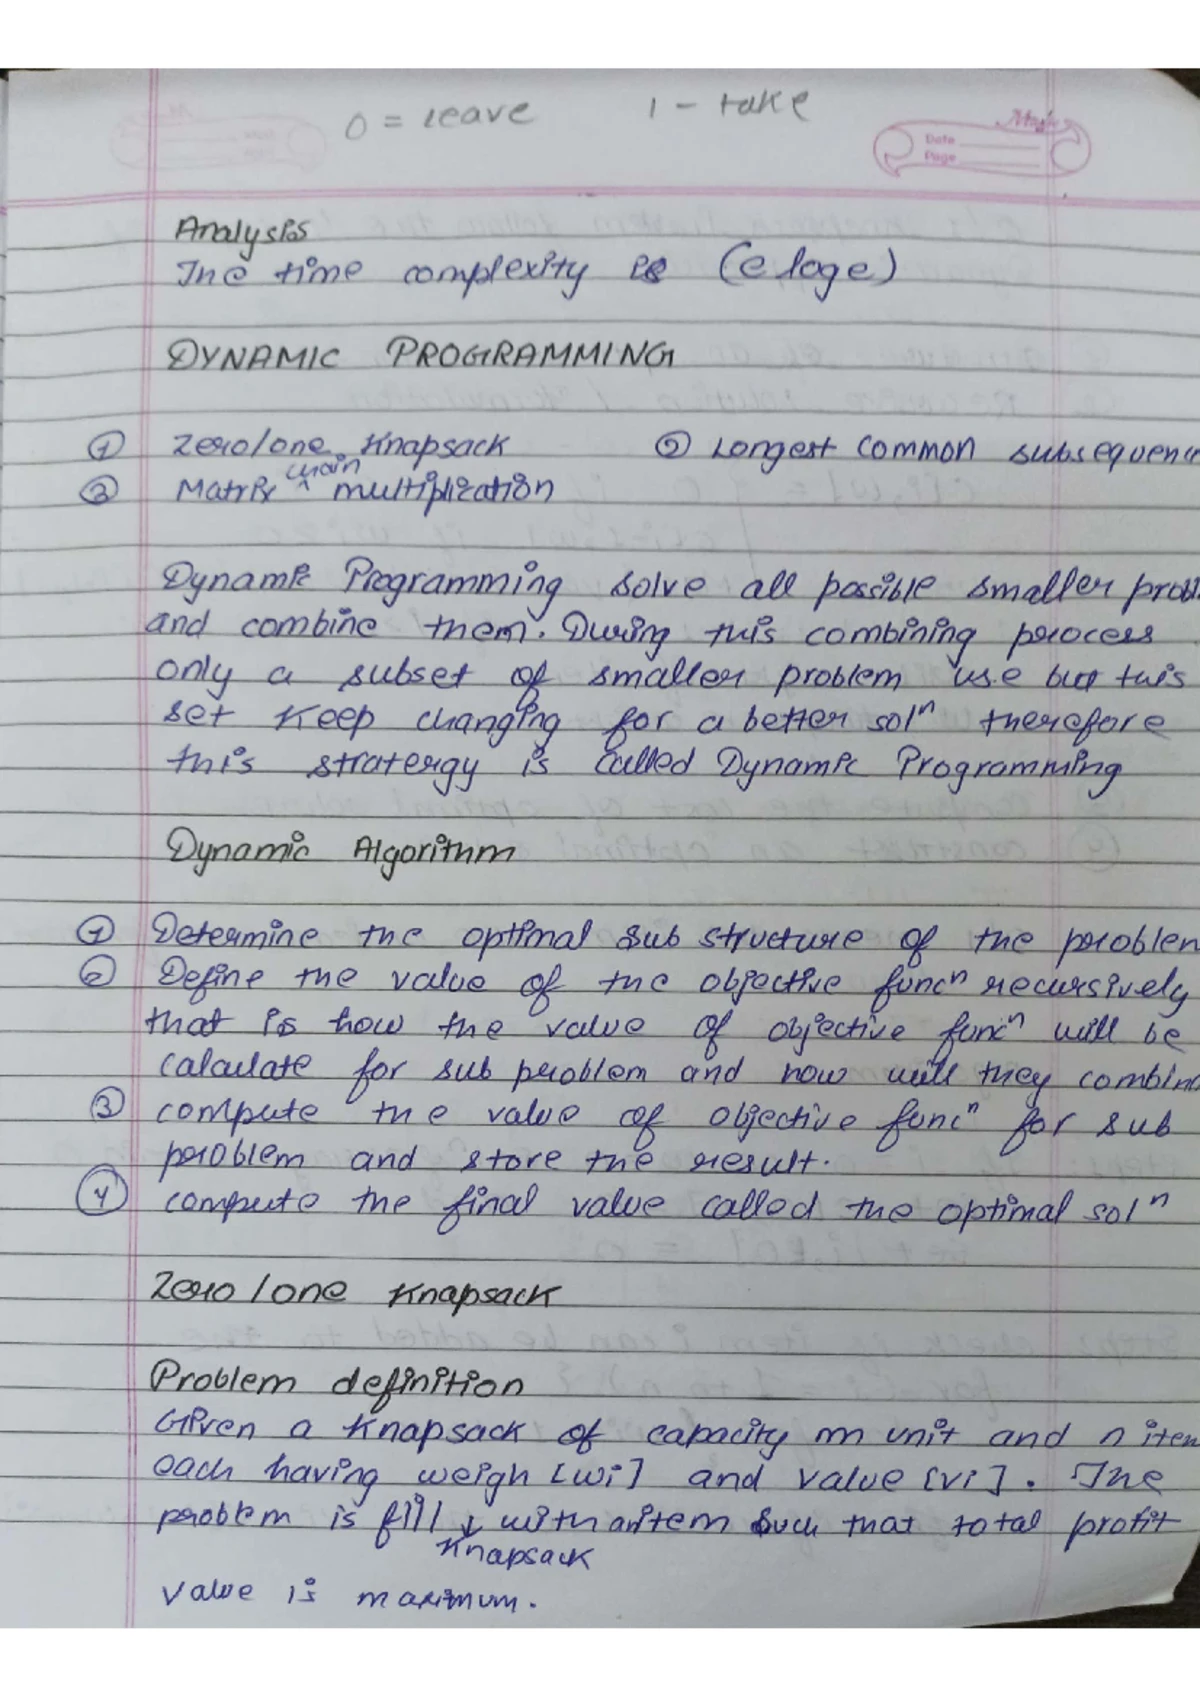 0 = leave 1 - take
Date
Page
Analysis
The time complexity is (e loge)
DYNAMIC PROGRAMMING
① Zero/one Knapsack ② Longest common subsequenc
③ Matrix chain multiplication
Dynamic Programming solve all possible smaller probl
and combine them. During this combining process
only a subset of smaller problem use but this
set keep changing for a better solⁿ therefore
this stratergy is called Dynamic Programming
Dynamic Algorithm
① Determine the optimal sub structure of the problem
② Define the value of the objective funcⁿ recursively
that is how the value of objective funcⁿ will be
calculate for sub problem and how will they combine
③ compute the value of objective funcⁿ for sub
problem and store the result.
④ compute the final value called the optimal solⁿ
Zero/one Knapsack
Problem definition
Given a Knapsack of capacity m unit and n item
each having weigh [wi] and value [vi]. The
problem is fill ↓ with an item such that total profit
Knapsack
value is maximum.